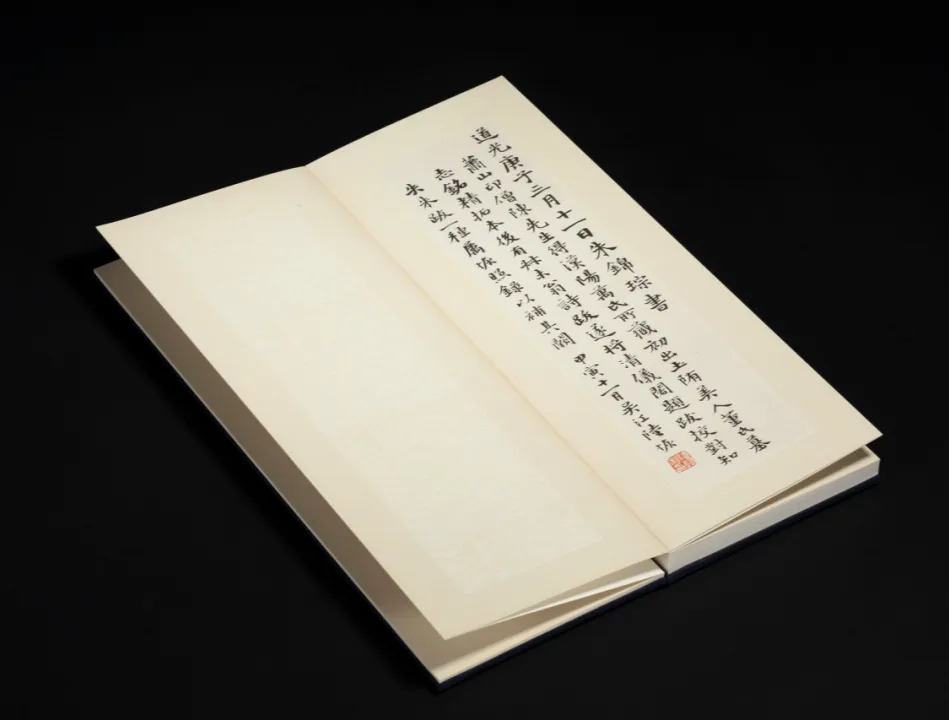 道光庚子三月十一日朱錦琮書
蕭山印僧陳先生得漢陽萬氏所藏初出土陏美人董氏墓
志銘精拓本後有叔未翁詩跋遂將清儀閣題跋挍對知
失朱跋一種屬恢照錄以補其闕 甲寅十一月吳江陸恢